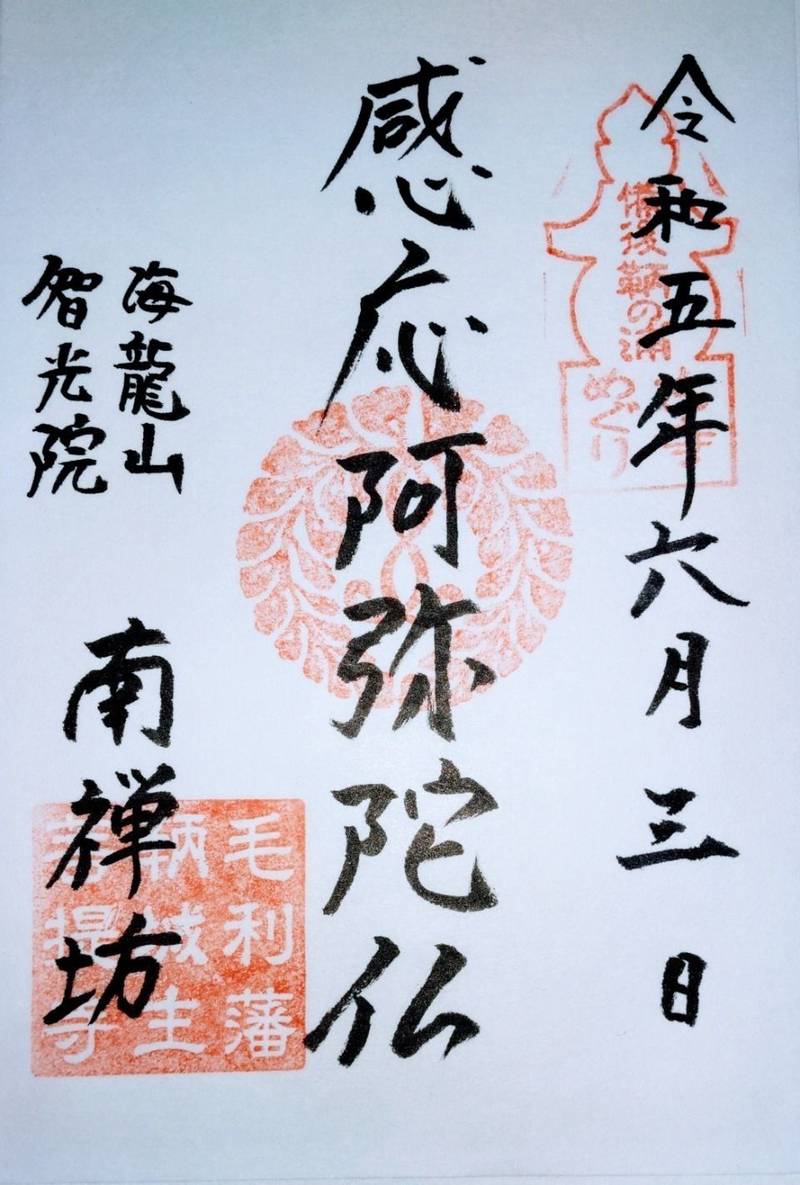 令和五年六月三日
備後鞆の浦
めぐり
感応阿弥陀仏
海龍山
智光院
南禅坊
毛利藩
鞆城主
菩提寺